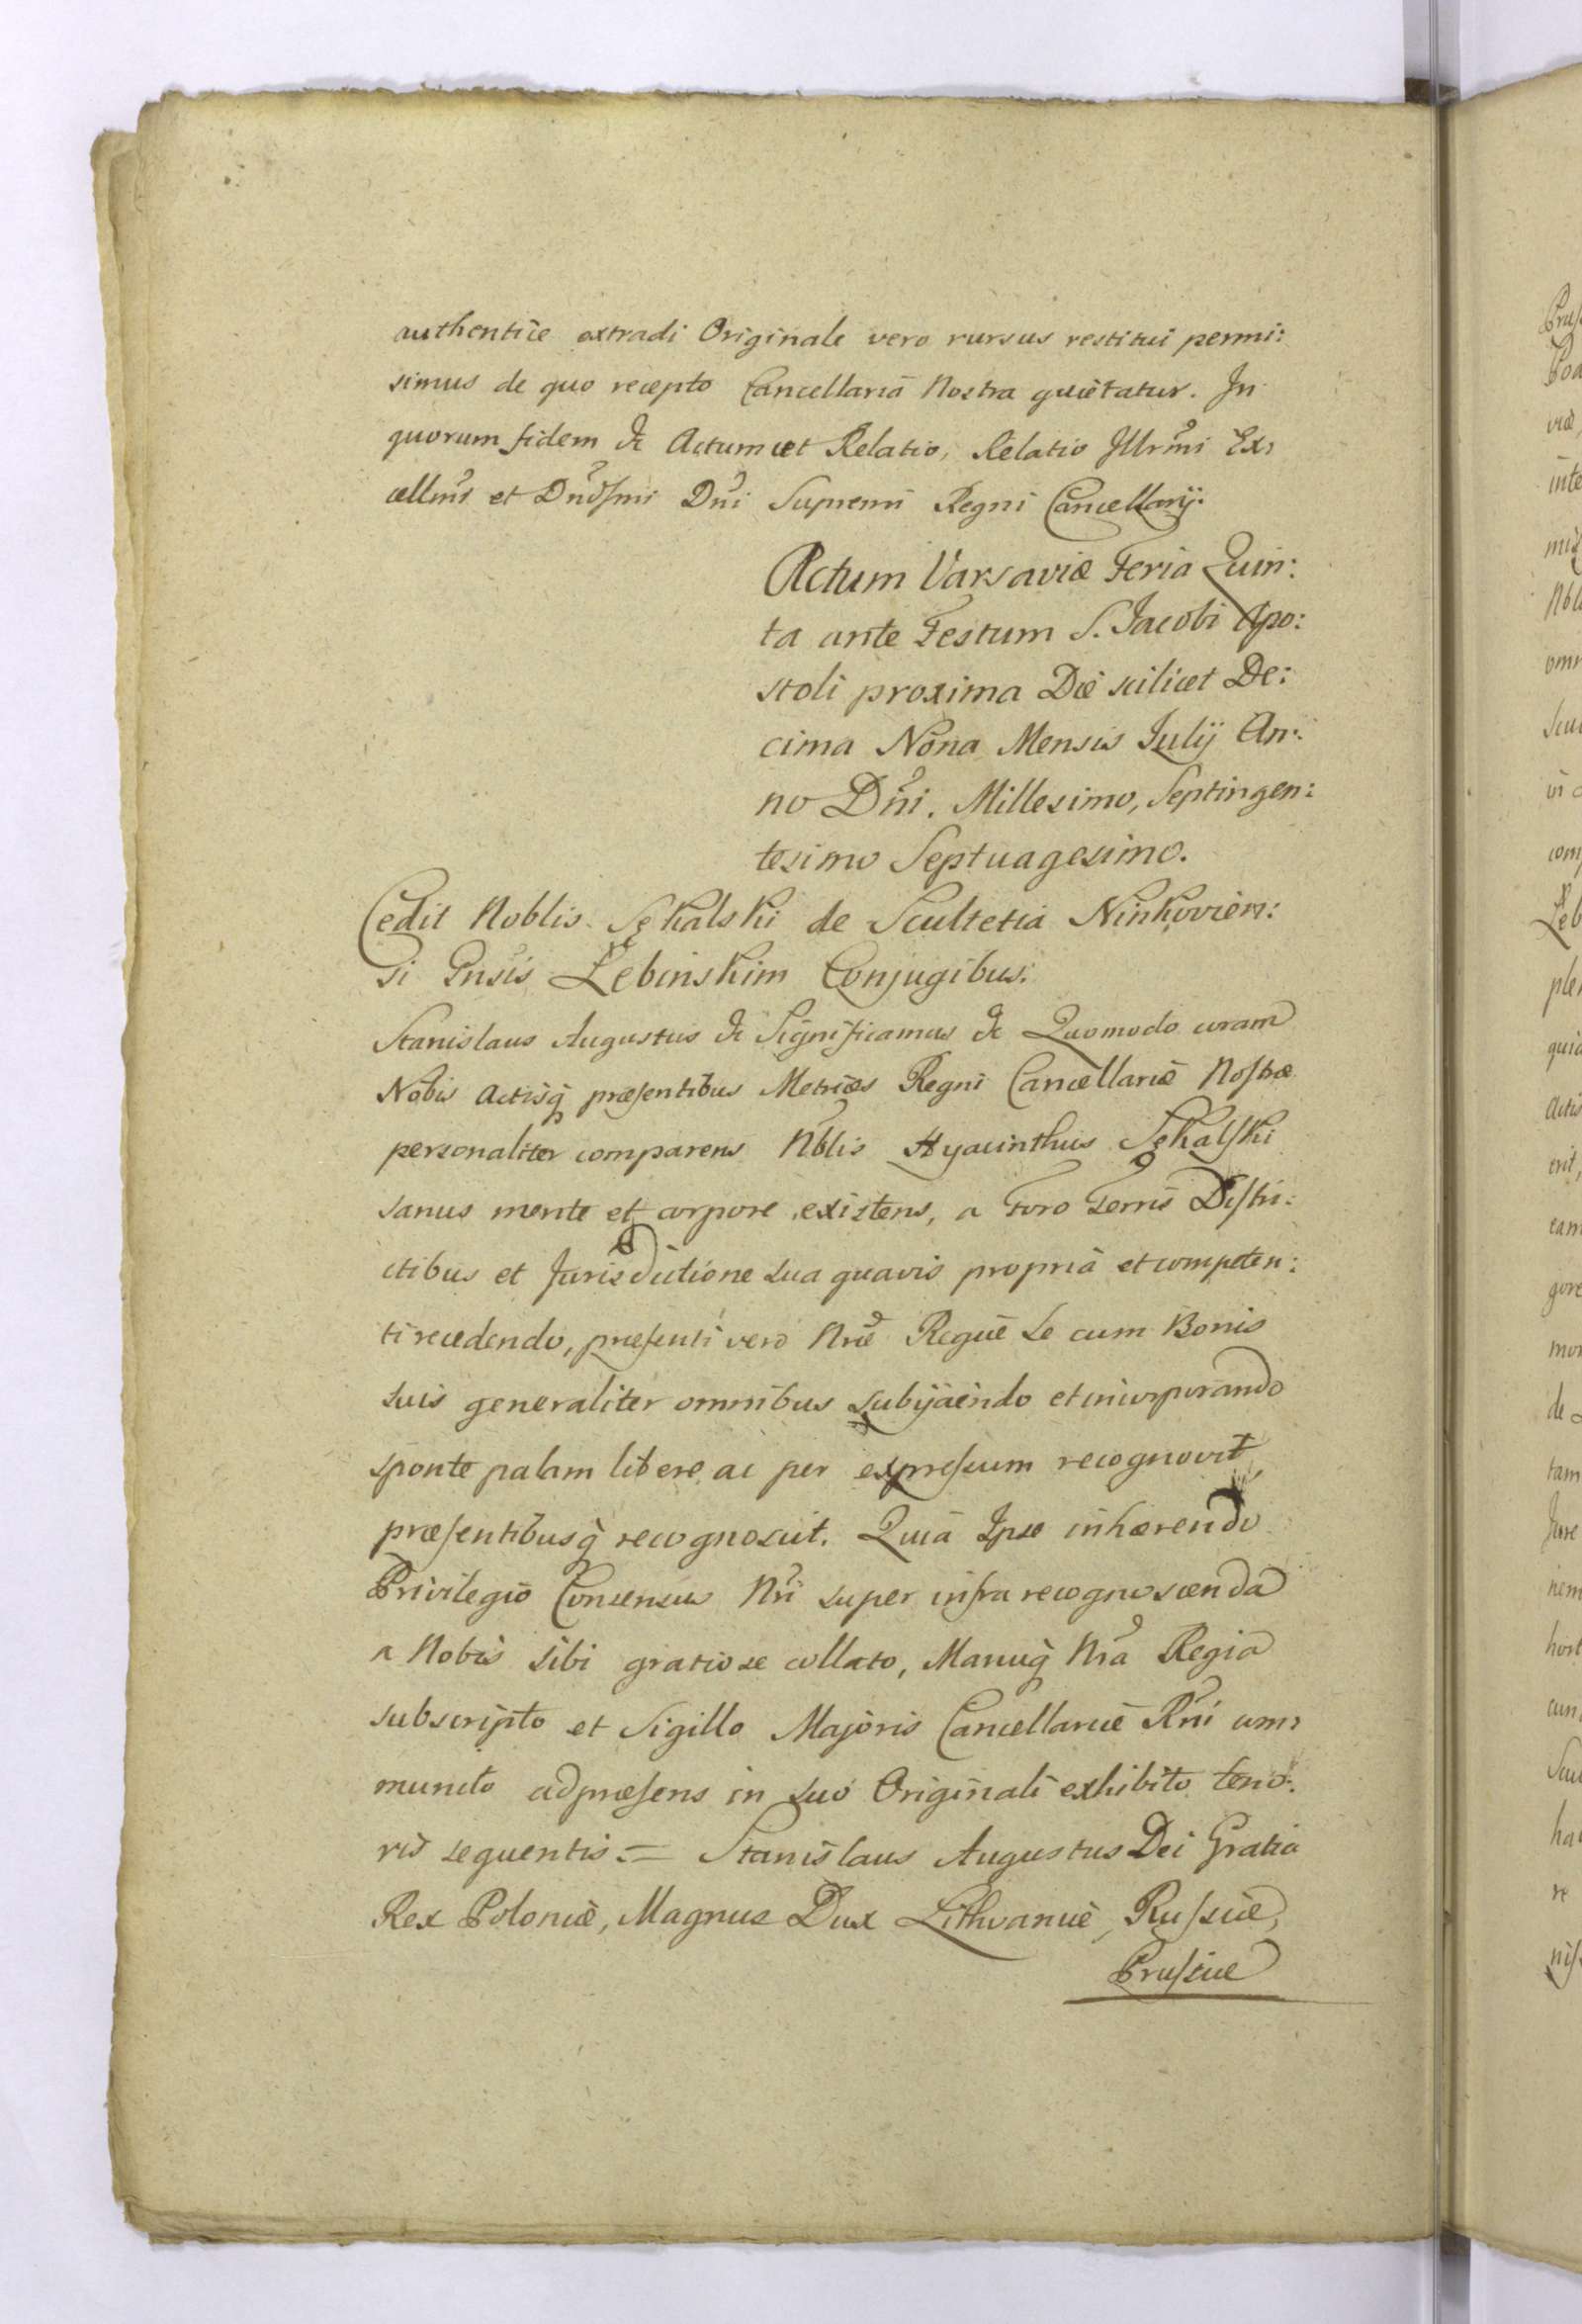 authentice extradi Originale vero rursus restitui permi:
simus de quo recepto Cancellaria Nostra quietatur. In
quorum fidem &c Actum ut Relatio, Relatio Illrmi Ex:
cellmi et Dnodsmi Dni Supremi Regni Cancellarij.
Actum Varsaviæ Feria Quin:
ta ante Festum S. Jacobi Apo:
stoli proxima Die scilicet De:
cima Nona Mensis Julij An:
no Dni. Millesimo, Septingen:
tesimo Septuagesimo.
Cedit Noblis Sękalski de Scultetia Ninkovien:
si Gnsis Łebinskim Conjugibus.
Stanislaus Augustus &c Significamus &c Quomodo coram
Nobis Actisq̃ præsentibus Metrices Regni Cancellariæ Nostræ
personaliter comparens Nblis Hyacinthus Sękalski
sanus mente et corpore existens, a Foro Terris Distri:
ctibus et Jurisdictione sua quavis propria et competen:
ti recedendo, præsenti vero Nræ Regiæ se cum Bonis
suis generaliter omnibus subijciendo et incorporando
sponte palam libere ac per expressum recognovit,
præsentibusq̃ recognoscit. Quia Ipse inhærendo
Privilegio Consensus Nri super infra recognoscenda
a Nobis sibi gratiose collato, Manuq̃ Nra Regia
subscripto et Sigillo Majoris Cancellariæ Rni com:
munito ad præsens in suo Originali exhibito teno:
ris sequentis = Stanislaus Augustus Dei Gratia
Rex Poloniæ, Magnus Dux Lithvaniæ, Russiæ,
Prussiæ